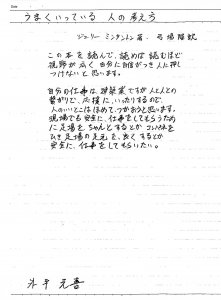 Date
うまくいっている人の考え方
ジェリー ミンチントン 著. 弓場隆 訳
この本を読んで、読めば読むほど
視野が広く自分に自信がつき人に押し
つけないと思います。
自分の仕事は、建築業ですが人と人との
繋がりで、応援に、いったりするので、
人のいいとこはほめて、つかおうと思います。
現場でも安全に、仕事をしてもらうため
に足場をちゃんとするとか コンパネを
ひき足場の足元を、良くするとか
安全に、仕事をしてもらいたい。